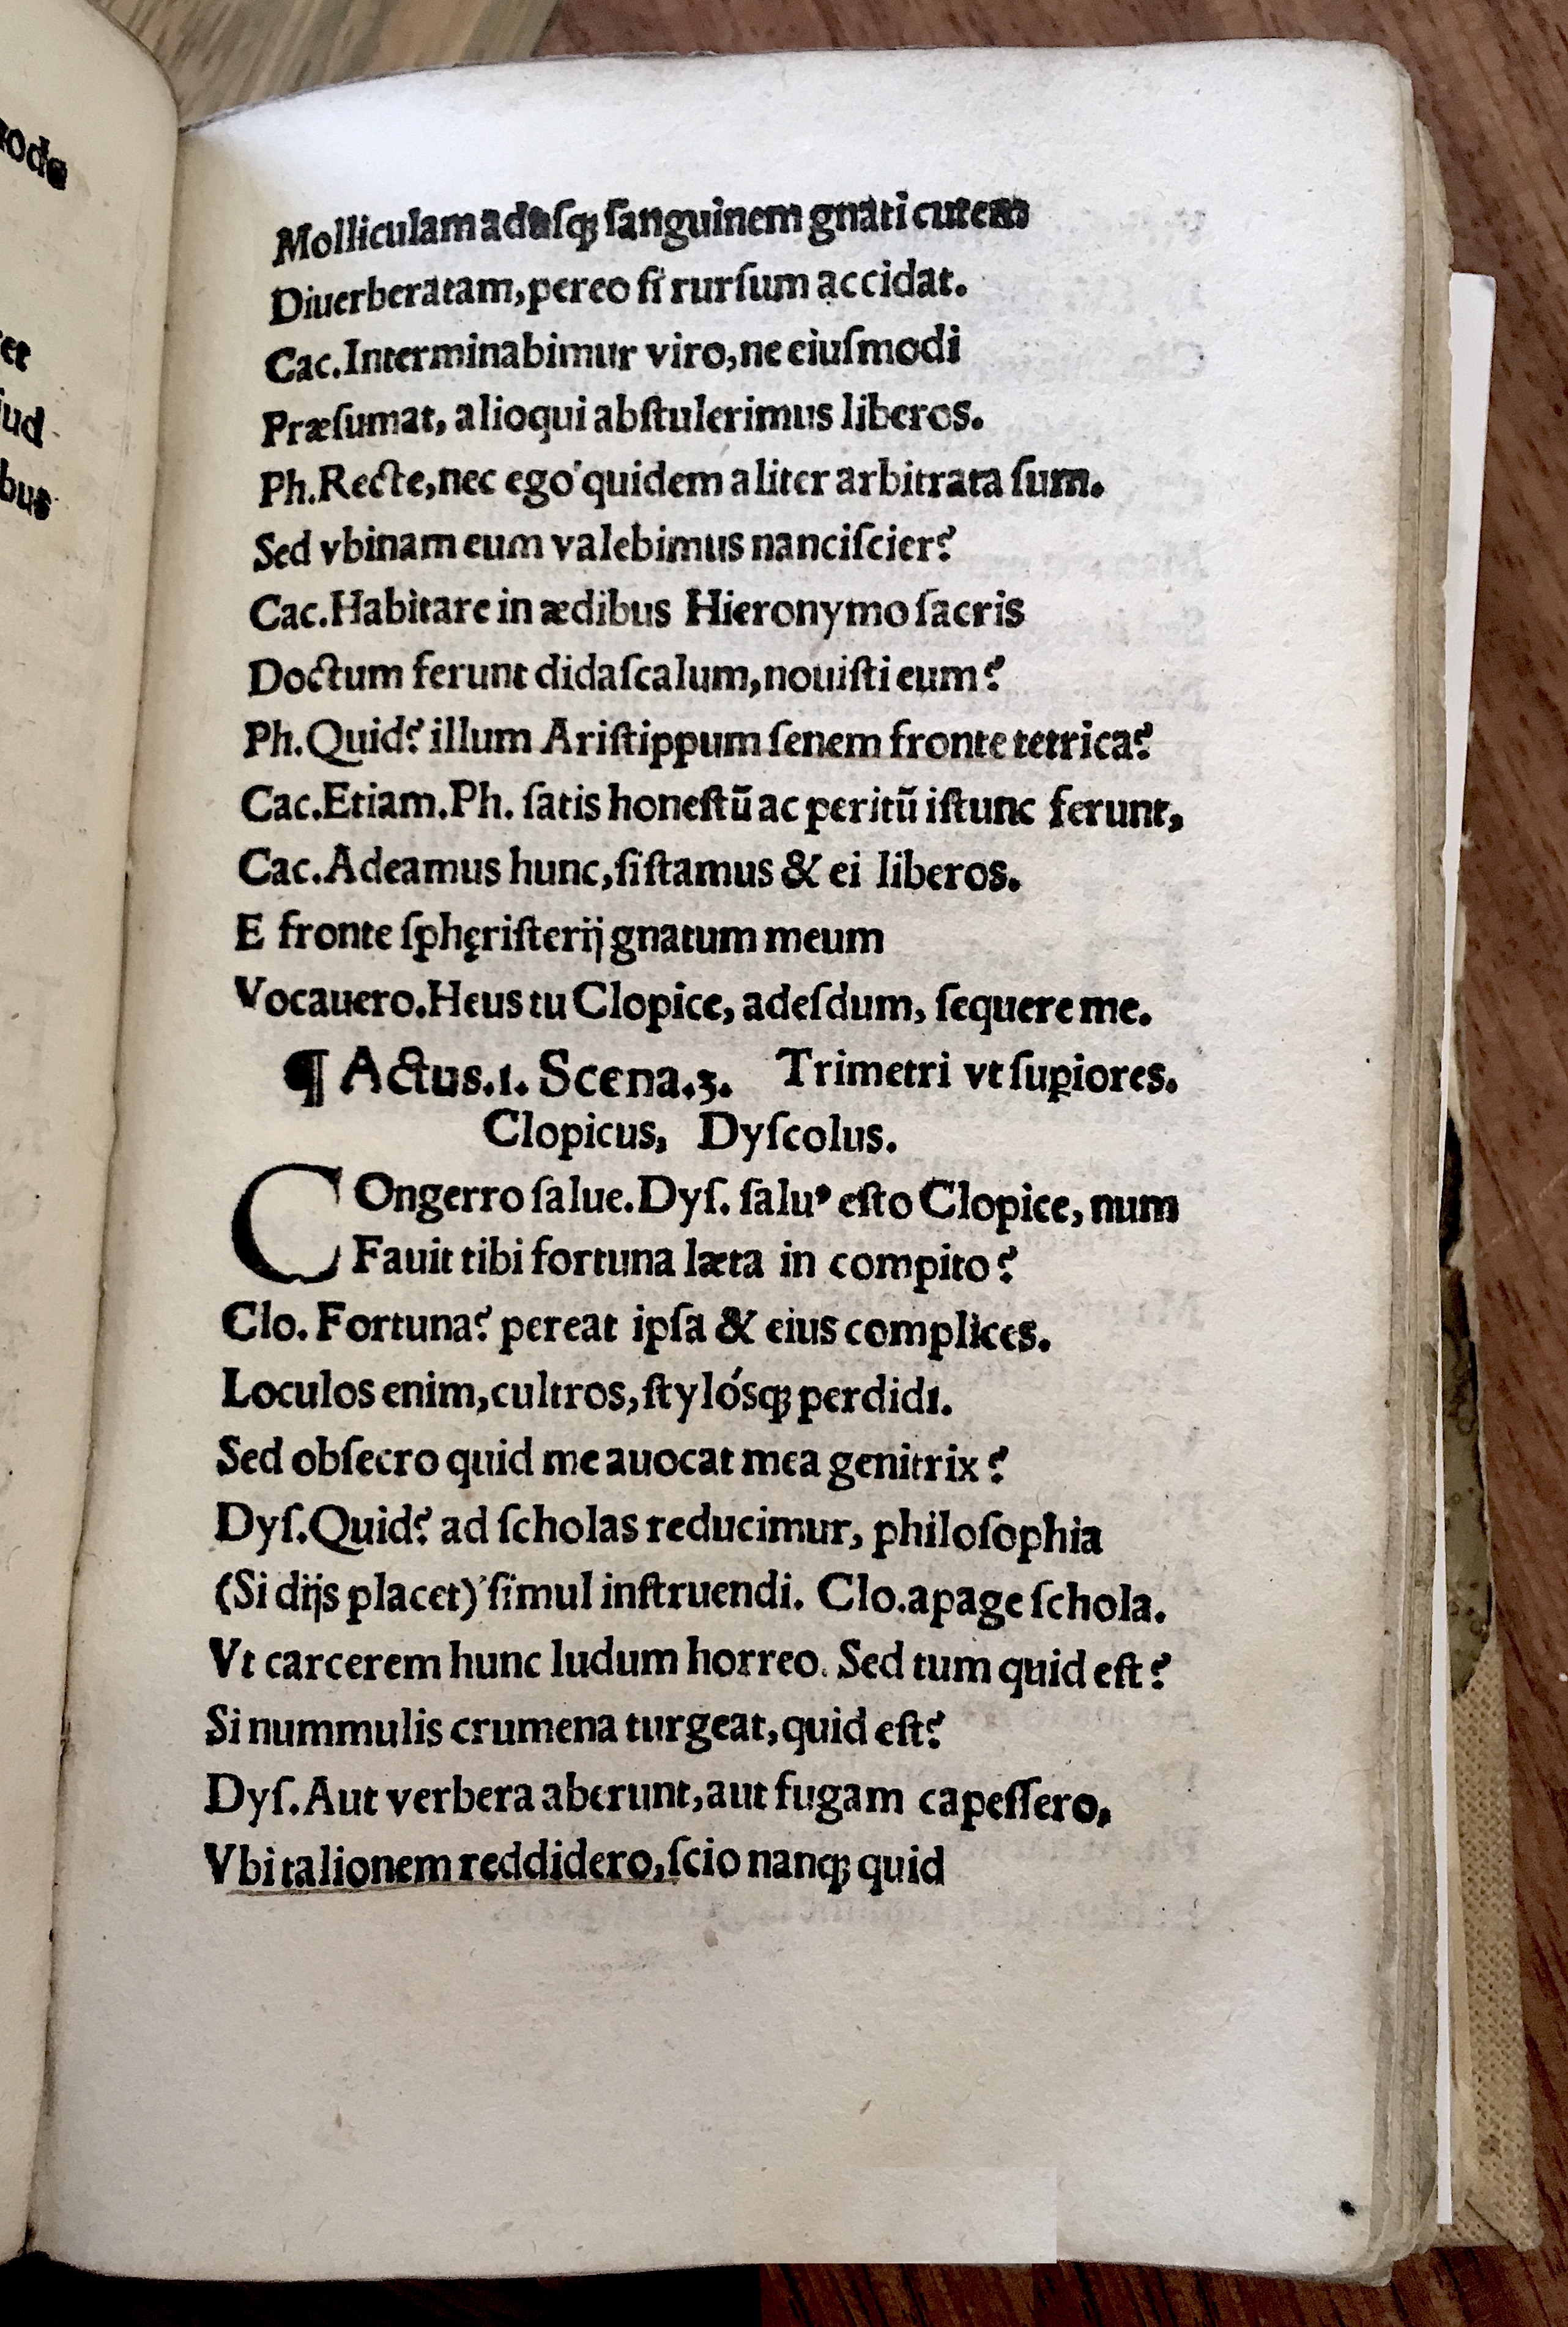 Molliculam adusqꝫ ſanguinem gnati cutem
Diuerberatam, pereo ſi rurſum accidat.
Cac. Interminabimur viro, ne eiuſmodi
Præſumat, alioqui abſtulerimus liberos.
Ph. Recte, nec ego quidem aliter arbitrata ſum.
Sed vbinam eum valebimus nanciſcier?
Cac. Habitare in ædibus Hieronymo ſacris
Doctum ferunt didaſcalum, nouiſti eum?
Ph. Quid? illum Ariſtippum ſenem fronte tetrica?
Cac. Etiam. Ph. ſatis honeſtū ac peritū iſtunc ferunt,
Cac. Adeamus hunc, ſiſtamus & ei liberos.
E fronte ſphęriſterij gnatum meum
Vocauero. Heus tu Clopice, adeſdum, ſequere me.
¶ Actus. 1. Scena. 3. Trimetri vt ſuꝑiores.
Clopicus, Dyſcolus.
COngerro ſalue. Dyſ. ſaluꝰ eſto Clopice, num
Fauit tibi fortuna læta in compito?
Clo. Fortuna? pereat ipſa & eius complices.
Loculos enim, cultros, ſtylósqꝫ perdidi.
Sed obſecro quid me auocat mea genitrix?
Dyſ. Quid? ad ſcholas reducimur, philoſophia
(Si dijs placet) ſimul inſtruendi. Clo. apage ſchola.
Vt carcerem hunc ludum horreo. Sed tum quid eſt?
Si nummulis crumena turgeat, quid eſt?
Dyſ. Aut verbera aberunt, aut fugam capeſſero,
Vbi talionem reddidero, ſcio nanqꝫ quid
ud
bus